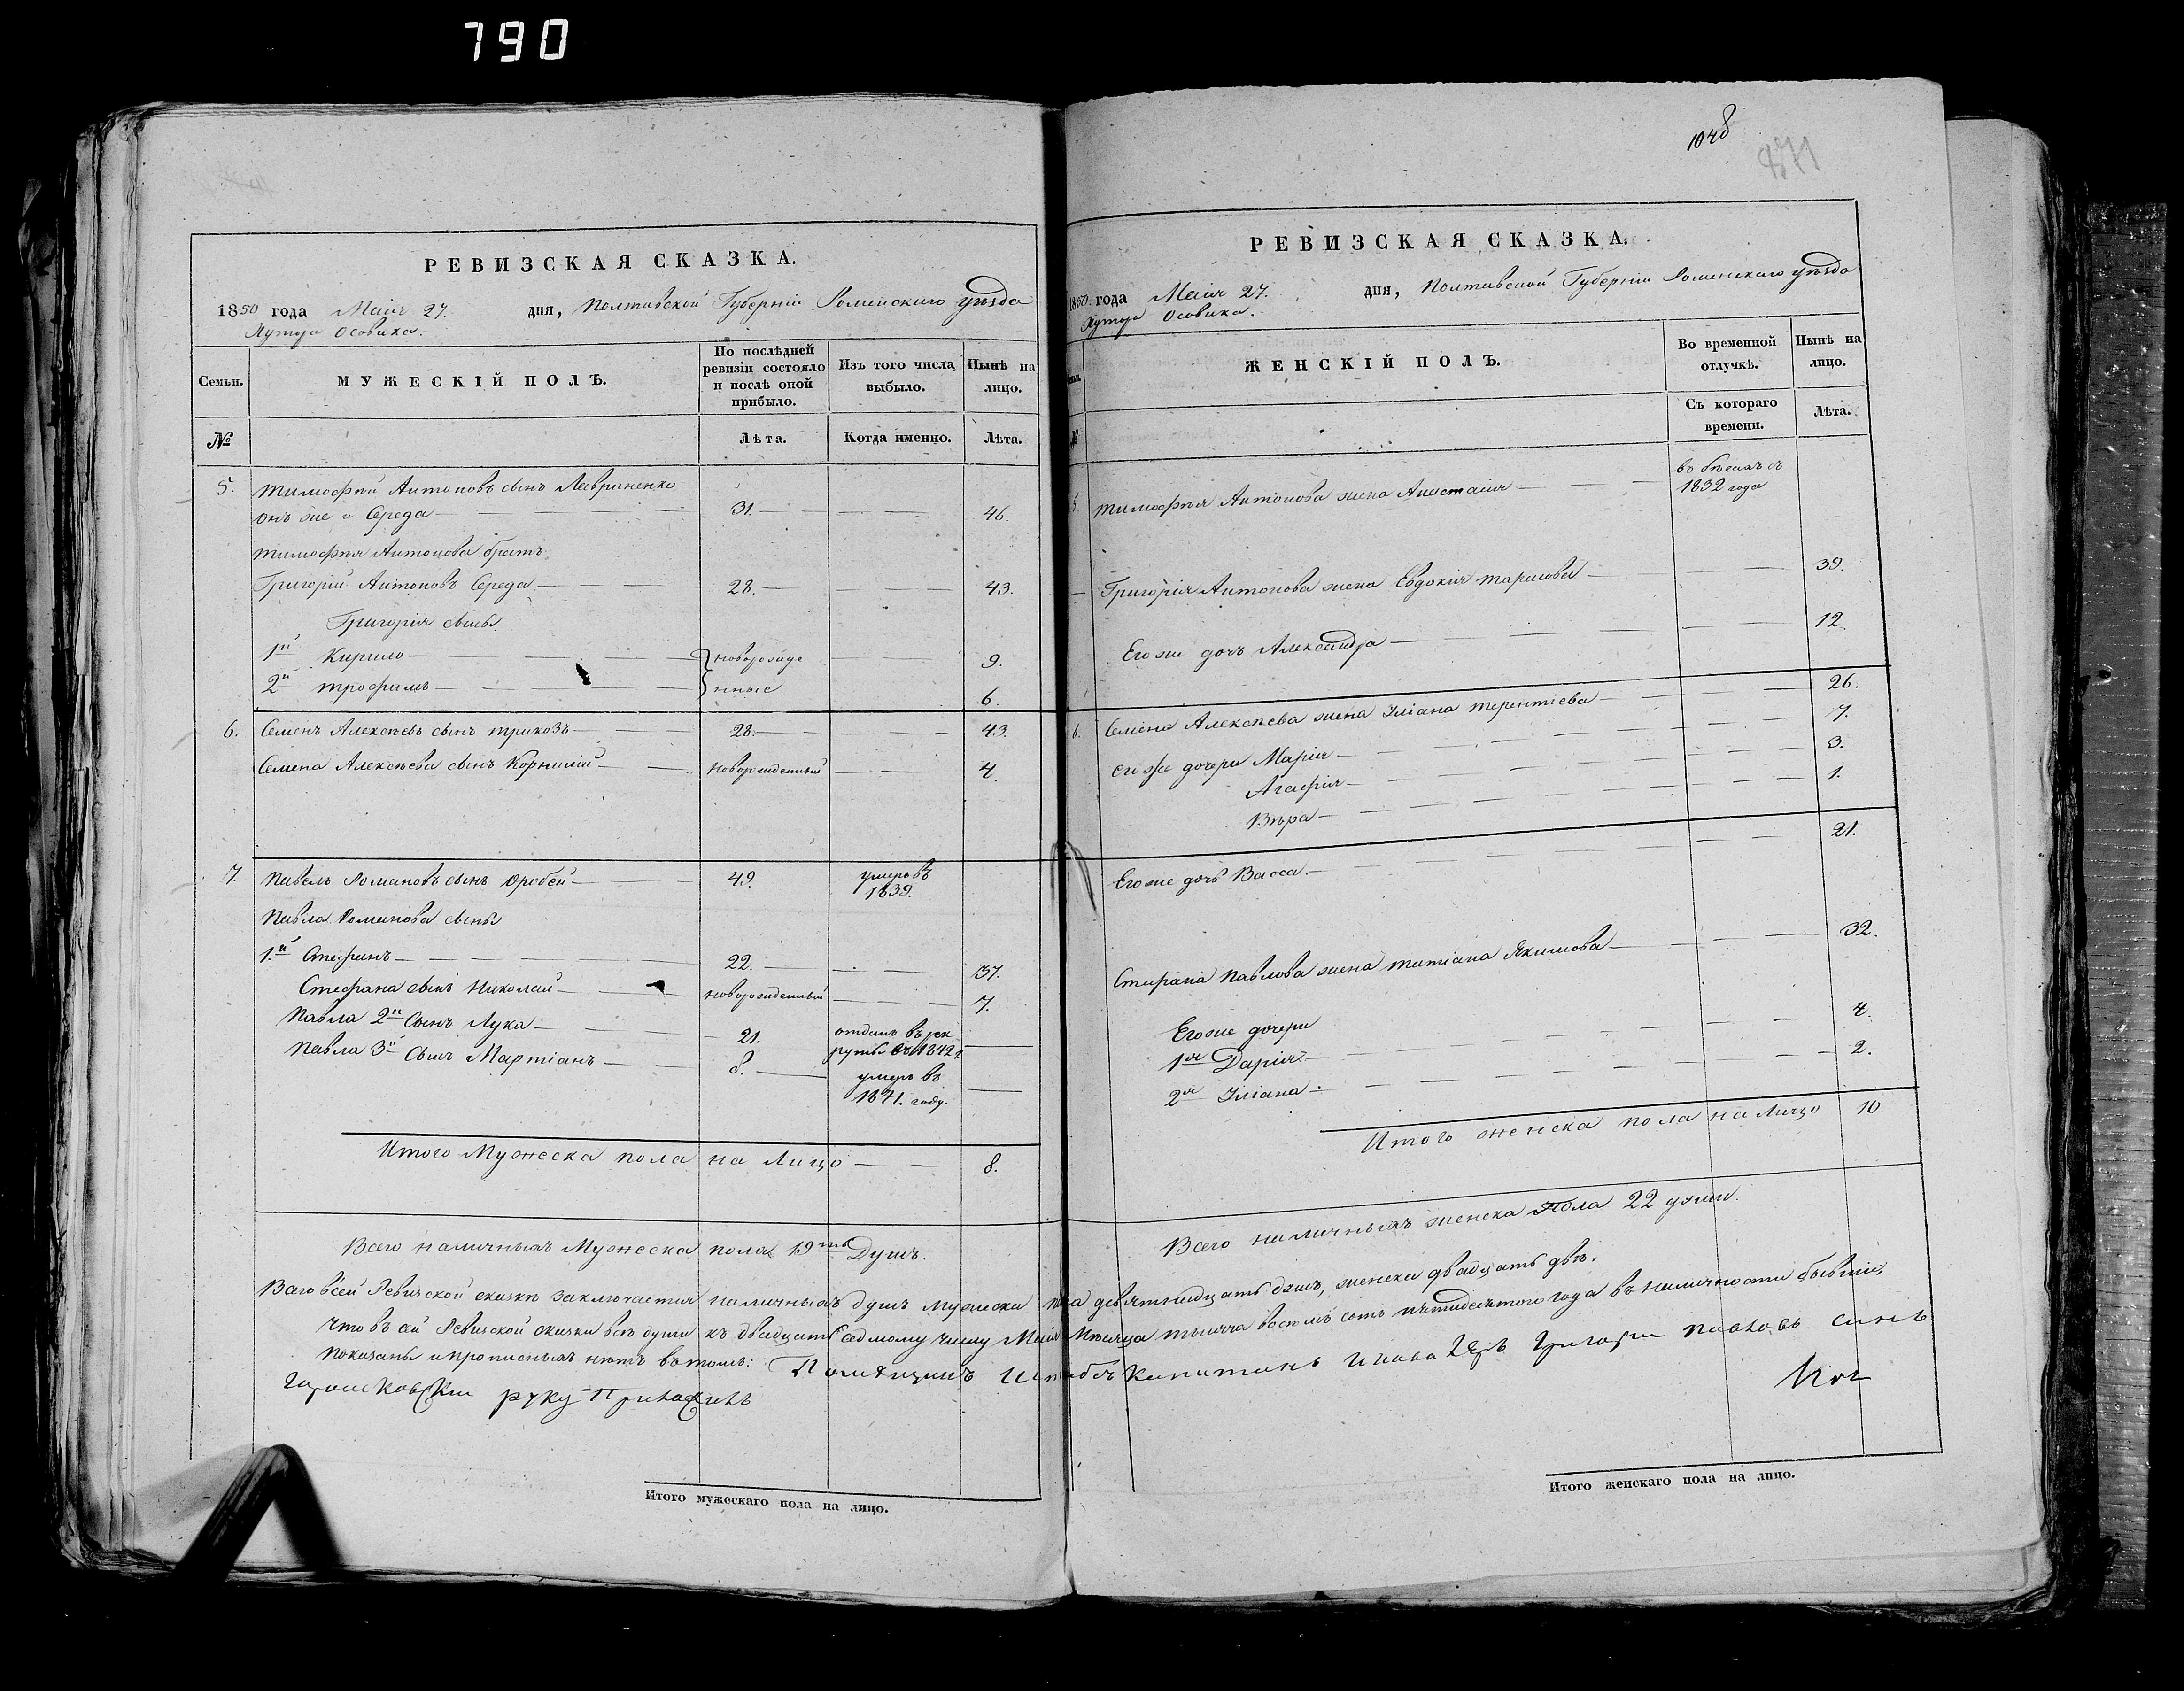 790
РЕВИЗСКАЯ СКАЗКА.
1850 года Маія 27. дня, Полтавской Губерніи Роменского уѣзда
Хутора Осовика.
Семьи.
МУЖЕСКІЙ ПОЛЪ.
По послѣдней ревизіи состояло и послѣ оной прибыло.
Изъ того числа выбыло.
Нынѣ на лицо.
№
Лѣта.
Когда именно.
Лѣта.
5. Тимофей Антоновъ сынъ Лавриненко
онъ же и Середа — 31. — 46.
Тимофея Антонова братъ
Григорій Антоновъ Середа — 28. — 43.
Григорія сыны
1й Кирило — новорожде — 9.
2й Трофимъ — нные 6.
6. Семенъ Алексѣевъ сынъ Трикозъ — 28. — 43.
Семена Алексѣева сынъ Корнилій — новорожденный — 4.
7. Павелъ Романовъ сынъ Оробей — 49. умеръ въ 1839.
Павла Романова сыны
1.й Стефанъ — 22. — 37.
Стефана сынъ Николай — новорожденный — 7.
Павла 2й Сынъ Лука — 21. отданъ въ рек руты въ 1842 г —
Павла 3й Сынъ Мартіанъ — 8. — умеръ въ 1841. году. —
Итого Мужеска пола на Лицо — 8.
Всего наличныхъ Мужеска пола 19ть Душъ.
1048
871
РЕВИЗСКАЯ СКАЗКА.
1850 года Маія 27. дня, Полтавской Губерніи Роменского уѣзда
Хутора Осовика.
ЖЕНСКІЙ ПОЛЪ.
Во временной отлучкѣ.
Нынѣ на лицо.
№
Съ котораго времени.
Лѣта.
5. Тимофея Антонова жена Анастасія — въ бѣгахъ съ 1832 года
— Григорія Антонова жена Евдокія Тарасова — 39.
Его же дочь Александра — 12.
6. Семена Алексѣева жена Уліана Терентіева — 26.
его же дочери Марія — 7.
Агафія — 3.
Вѣра — 1.
Его же дочь Васса — 21.
Стефана Павлова жена Татіана Якимова — 32.
Его же дочери
1я Дарія — 4.
2я Уліана — 2.
Итого женска пола на Лицо 10.
Всего наличныхъ женска Пола 22 души.
Всего въ сей Ревизской сказкѣ заключается наличныхъ душъ мужеска пола девятнадцать душъ, женска двадцать двѣ.
Что въ сей Ревизской сказки всѣ души къ двадцать седмому числу Маія Мѣсяца тысяча восемь сотъ пятидесятого года въ наличности бывшіе,
показаны и прописныхъ нѣтъ въ томъ: Помѣщикъ Штабсъ Капитанъ и Григори Павловъ синъ
руку Приложилъ
Итого мужескаго пола на лицо.
Итого женскаго пола на лицо.